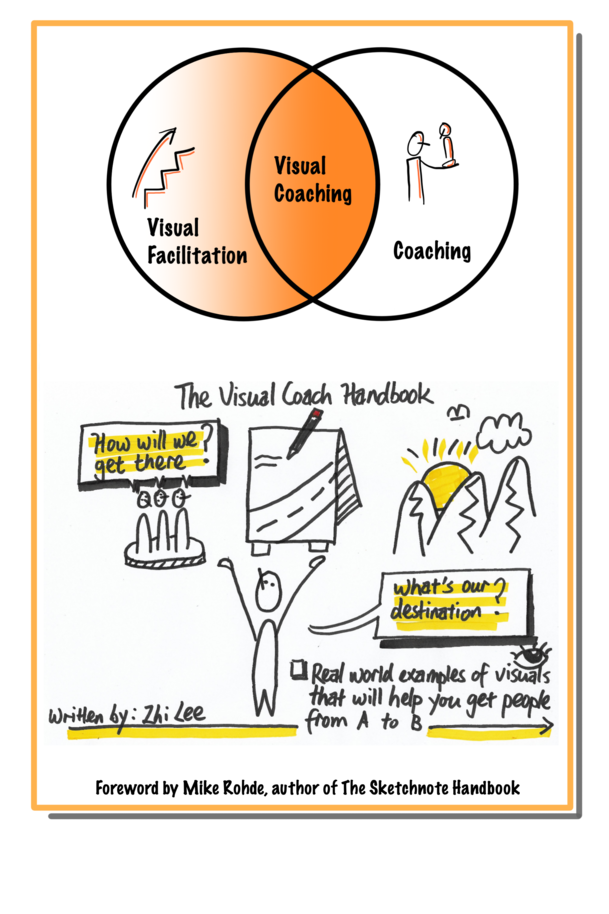 Visual
Coaching
Visual
Facilitation
Coaching
The Visual Coach Handbook
How will we
get there ?
What's our
destination ?
Real world examples of visuals
that will help you get people
from A to B
Written by: Zhi Lee
Foreword by Mike Rohde, author of The Sketchnote Handbook